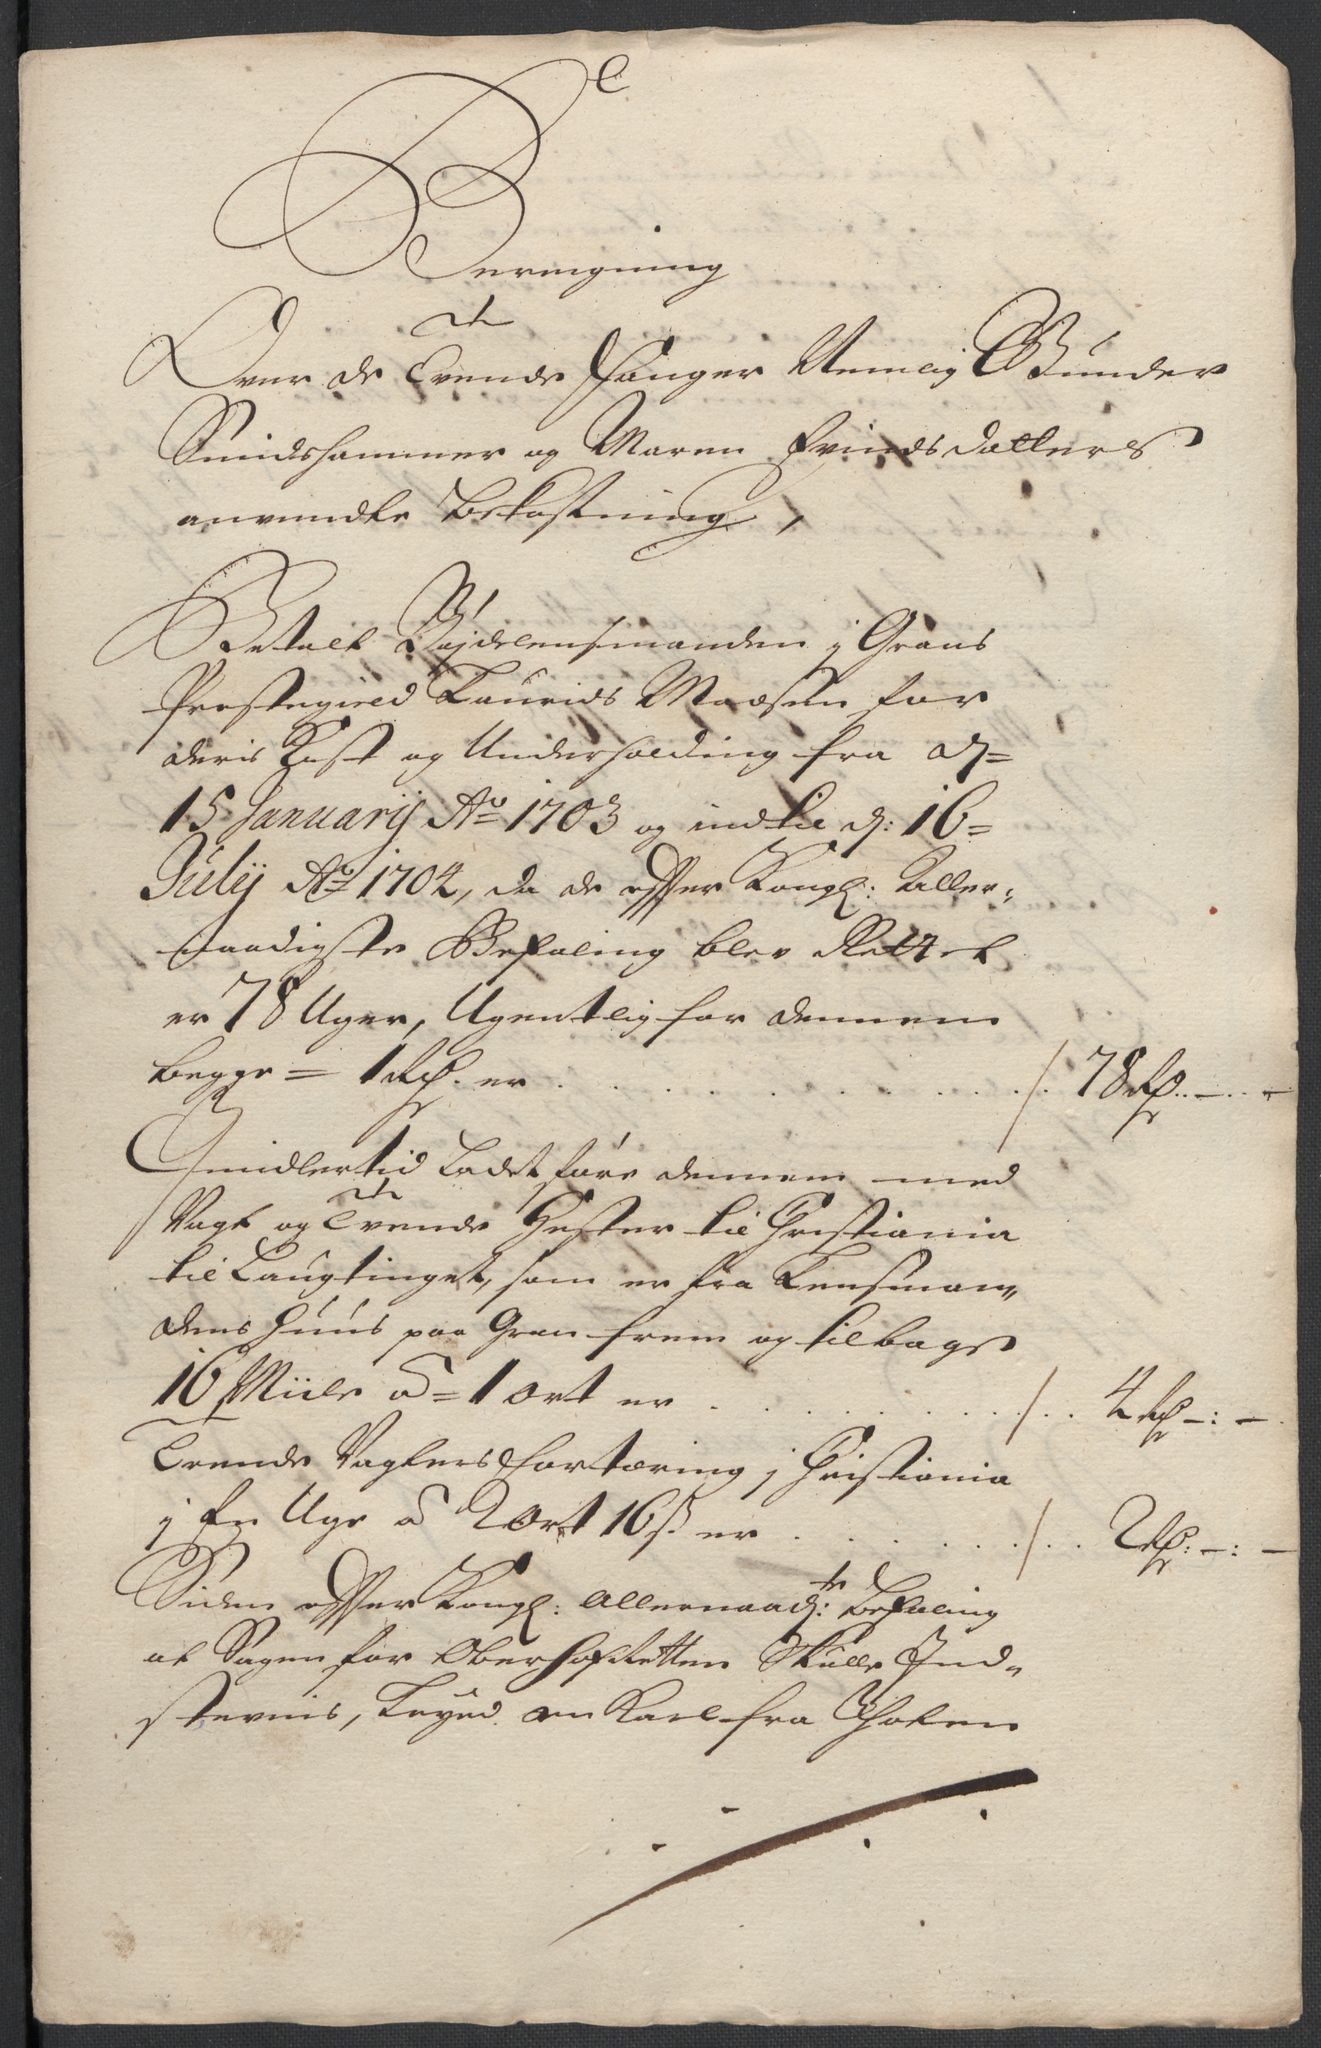 Beregning
Over de tvende Fanger Nemlig Gunder
Smidshammer og Maren Evindsdatters
anvendte Bekostning,
Betalt Bøjdelensmanden j Grans
Prestegield Laurids Madsen for
deris Kost og Underholding fra d:
15 Januarij Ao 1703 og indtil d: 16
Julij Ao 1704, da de effter Kongl: Aller-
naadigste Befaling blev Rettet
er 78 Uger, Ugentlig for dennem
begge = 1 Rd. er . . . . . . . . /. 78 Rd. - . -
Imidlertid Ladet føre dennem med
Vagt og tvende Hester til Christiania
til Laugtinget, som er fra Lensman-
dens Huus paa Gran frem og tilbage
16 Miile a = 1 ort er . . . . . . . /. 4 Rd - : -
Tvende Vagters Fortæring j Christiania
j En Uge a 2 Ort 16 s. er . . . . . . /. 2 Rd: - : -
Siden effter Kongl: Allernaad: ste Befaling
at Sagen for OberhofRetten Skulle Ind-
stevnis, Leyed en Karl fra